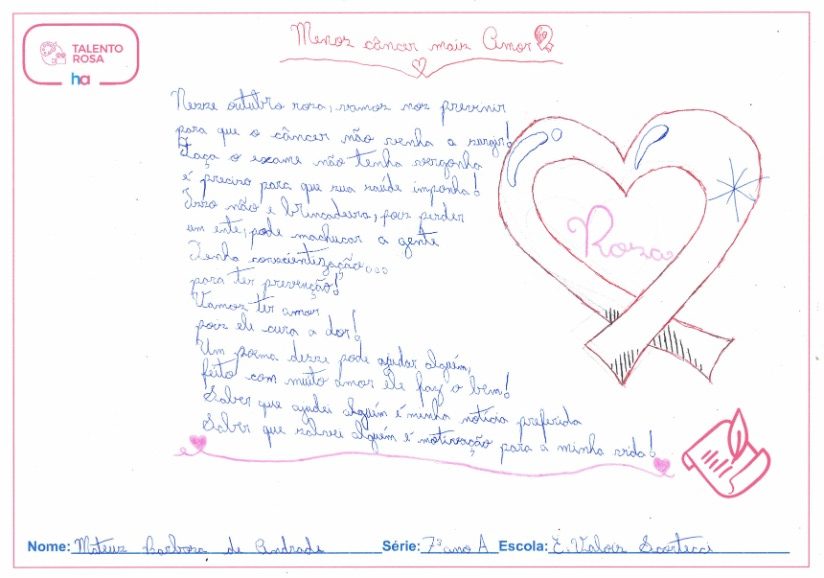 TALENTO
ROSA
ha
Menos câncer mais Amor
Nesse outubro rosa, vamos nos prevenir
para que o câncer não venha a surgir!
Faça o exame não tenha vergonha
é preciso para que sua saúde imponha!
Isso não e brincadeira, pois perder
um ente, pode machucar a gente
Tenha conscientização...
para ter prevenção!
Vamos ter amor
pois ele cura a dor!
Um poema desse pode ajudar alguém,
feito com muito amor ele faz o bem!
Saber que ajudei alguém é minha notícia preferida
Saber que salvei alguém é motivação para a minha vida!
Rosa
Nome: Mateus Barbosa de Andrade Série: 7º ano A Escola: E. Valois Scortecci